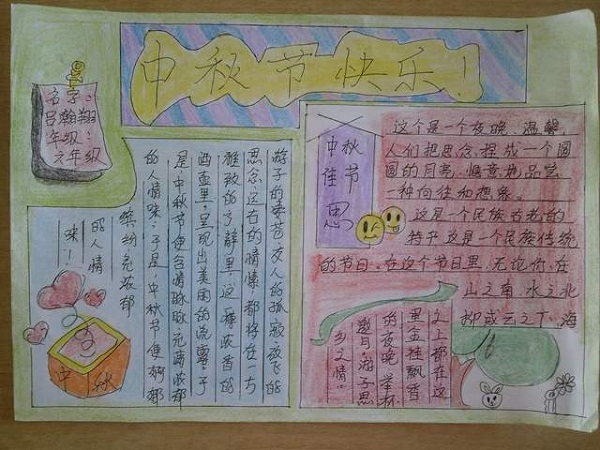 中秋节快乐!
名字:
吕翰翔
年级:
六年级
游子的凄苦友人的孤寂放飞的
思念远古的情愫都将在一方
雅致的宁静里,这种浓香的
酒盅里,呈现出美丽的流露,于
是,中秋节便含情脉脉充满浓郁
的人情味,于是,中秋节便
缤纷色浓郁
的人情
味!
中秋
中秋
佳节
思
这个是一个夜晚,温馨,
人们把思念捏成一个圆
圆的月亮,惬意地品尝
一种向往和想象。
这是一个民族古老的
特产这是一个民族传统
的节日,在这个节日里,无论你在
山之南 水之北
抑或云之下,海
之上都在这
里金桂飘香
的夜晚,举杯
邀月,游子思
乡之情。